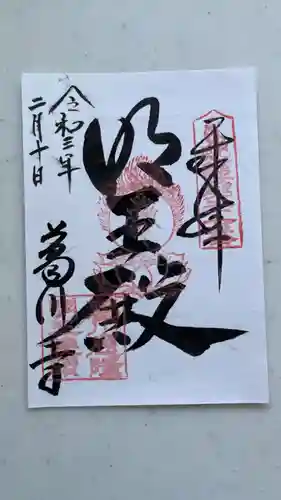 奉拝
明王殿
令和三年
二月十日
葛川寺